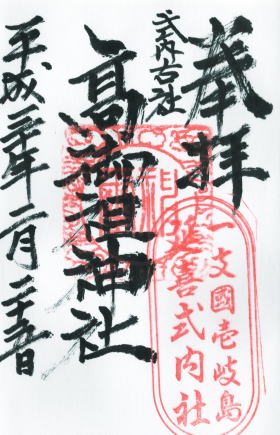 奉拝
式内古社
高御祖神社
平成三十年二月二十五日
一支國壱岐島
延喜式内社